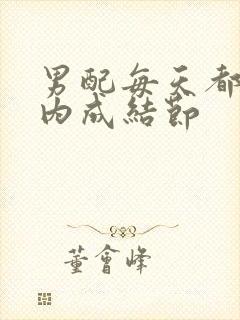 男配每天都
内成結節
董會峰